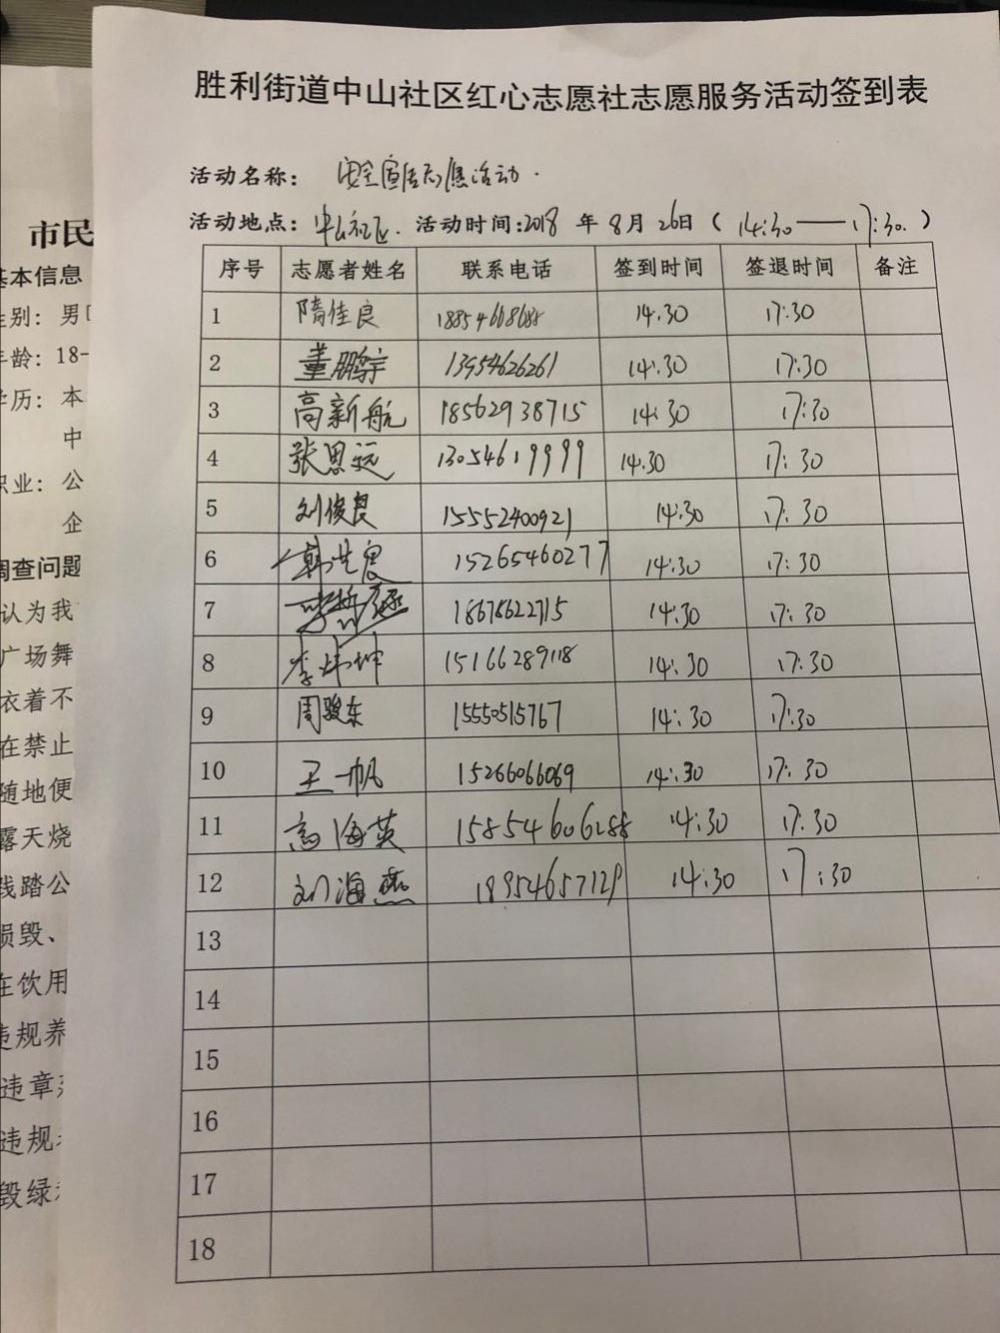 胜利街道中山社区红心志愿社志愿服务活动签到表
活动名称： 安全宣传志愿活动.
活动地点：中山社区. 活动时间:2018 年 8 月 26日（ 14:30——17:30. ）
序号 志愿者姓名 联系电话 签到时间 签退时间 备注
1 隋佳良 18854668688 14.30 17:30
2 董鹏宇 13954626261 14:30 17:30
3 高新航 18562938715 14:30 17:30
4 张思远 13054619999 14.30 17:30
5 刘俊良 15552400921 14:30 17:30
6 15265460277 14:30 17:30
7 18678622715 14:30 17:30
8 李炜坤 15166289118 14:30 17:30
9 周骏东 15550515767 14:30 17:30
10 王一帆 15266066069 14:30 17:30
11 高海英 15854606288 14:30 17:30
12 刘海燕 18954657129 14:30 17:30
13
14
15
16
17
18
市民
基本信息
性别：男
年龄：18-
学历：本
中
职业：公
企
调查问题
认为我
广场舞
衣着不
在禁止
随地便
露天烧
践踏公
损毁、
在饮用
违规养
违章
违规
毁绿